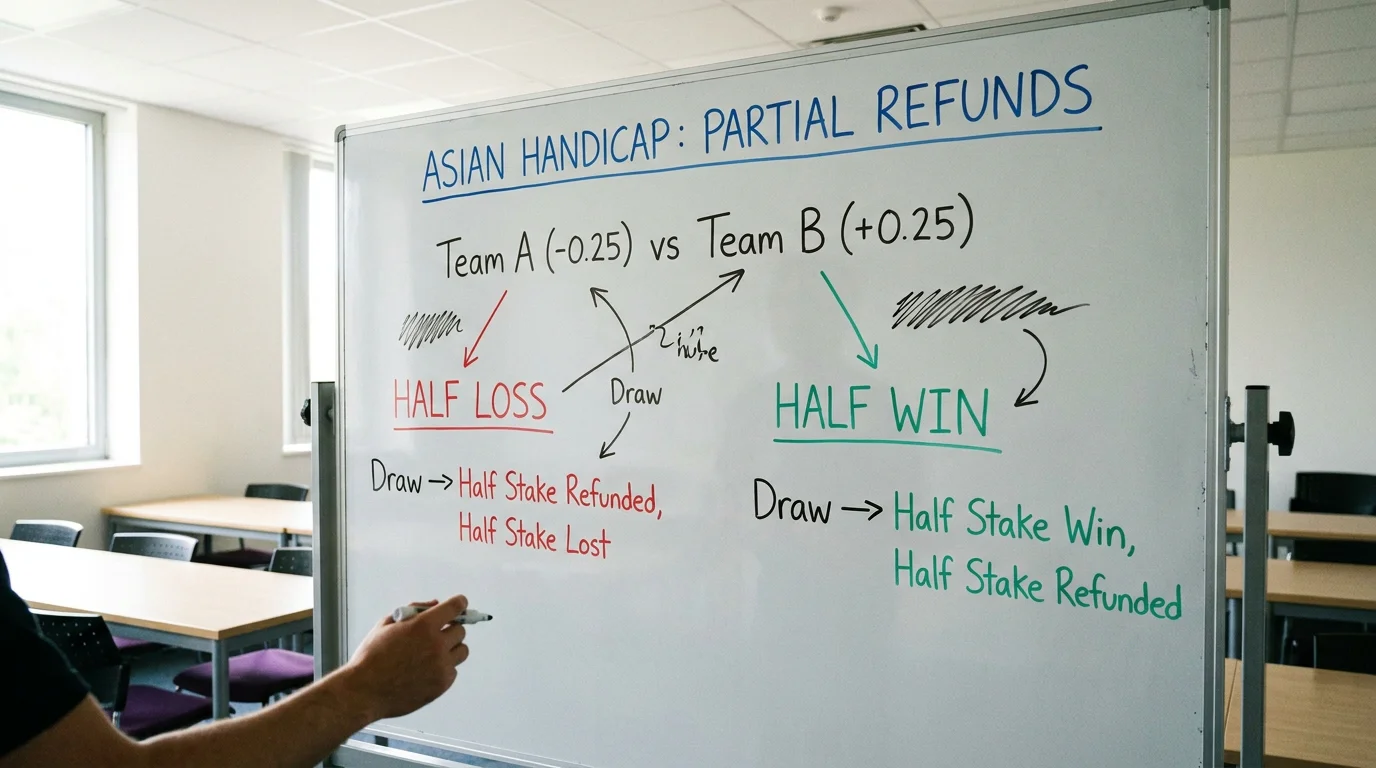 ASIAN HANDICAP: PARTIAL REFUNDS
Team A (-0.25) vs Team B (+0.25)
HALF LOSS
Draw
HALF WIN
Draw → Half Stake Refunded,
Half Stake Lost
Draw → Half Stake Win,
Half Stake Refunded